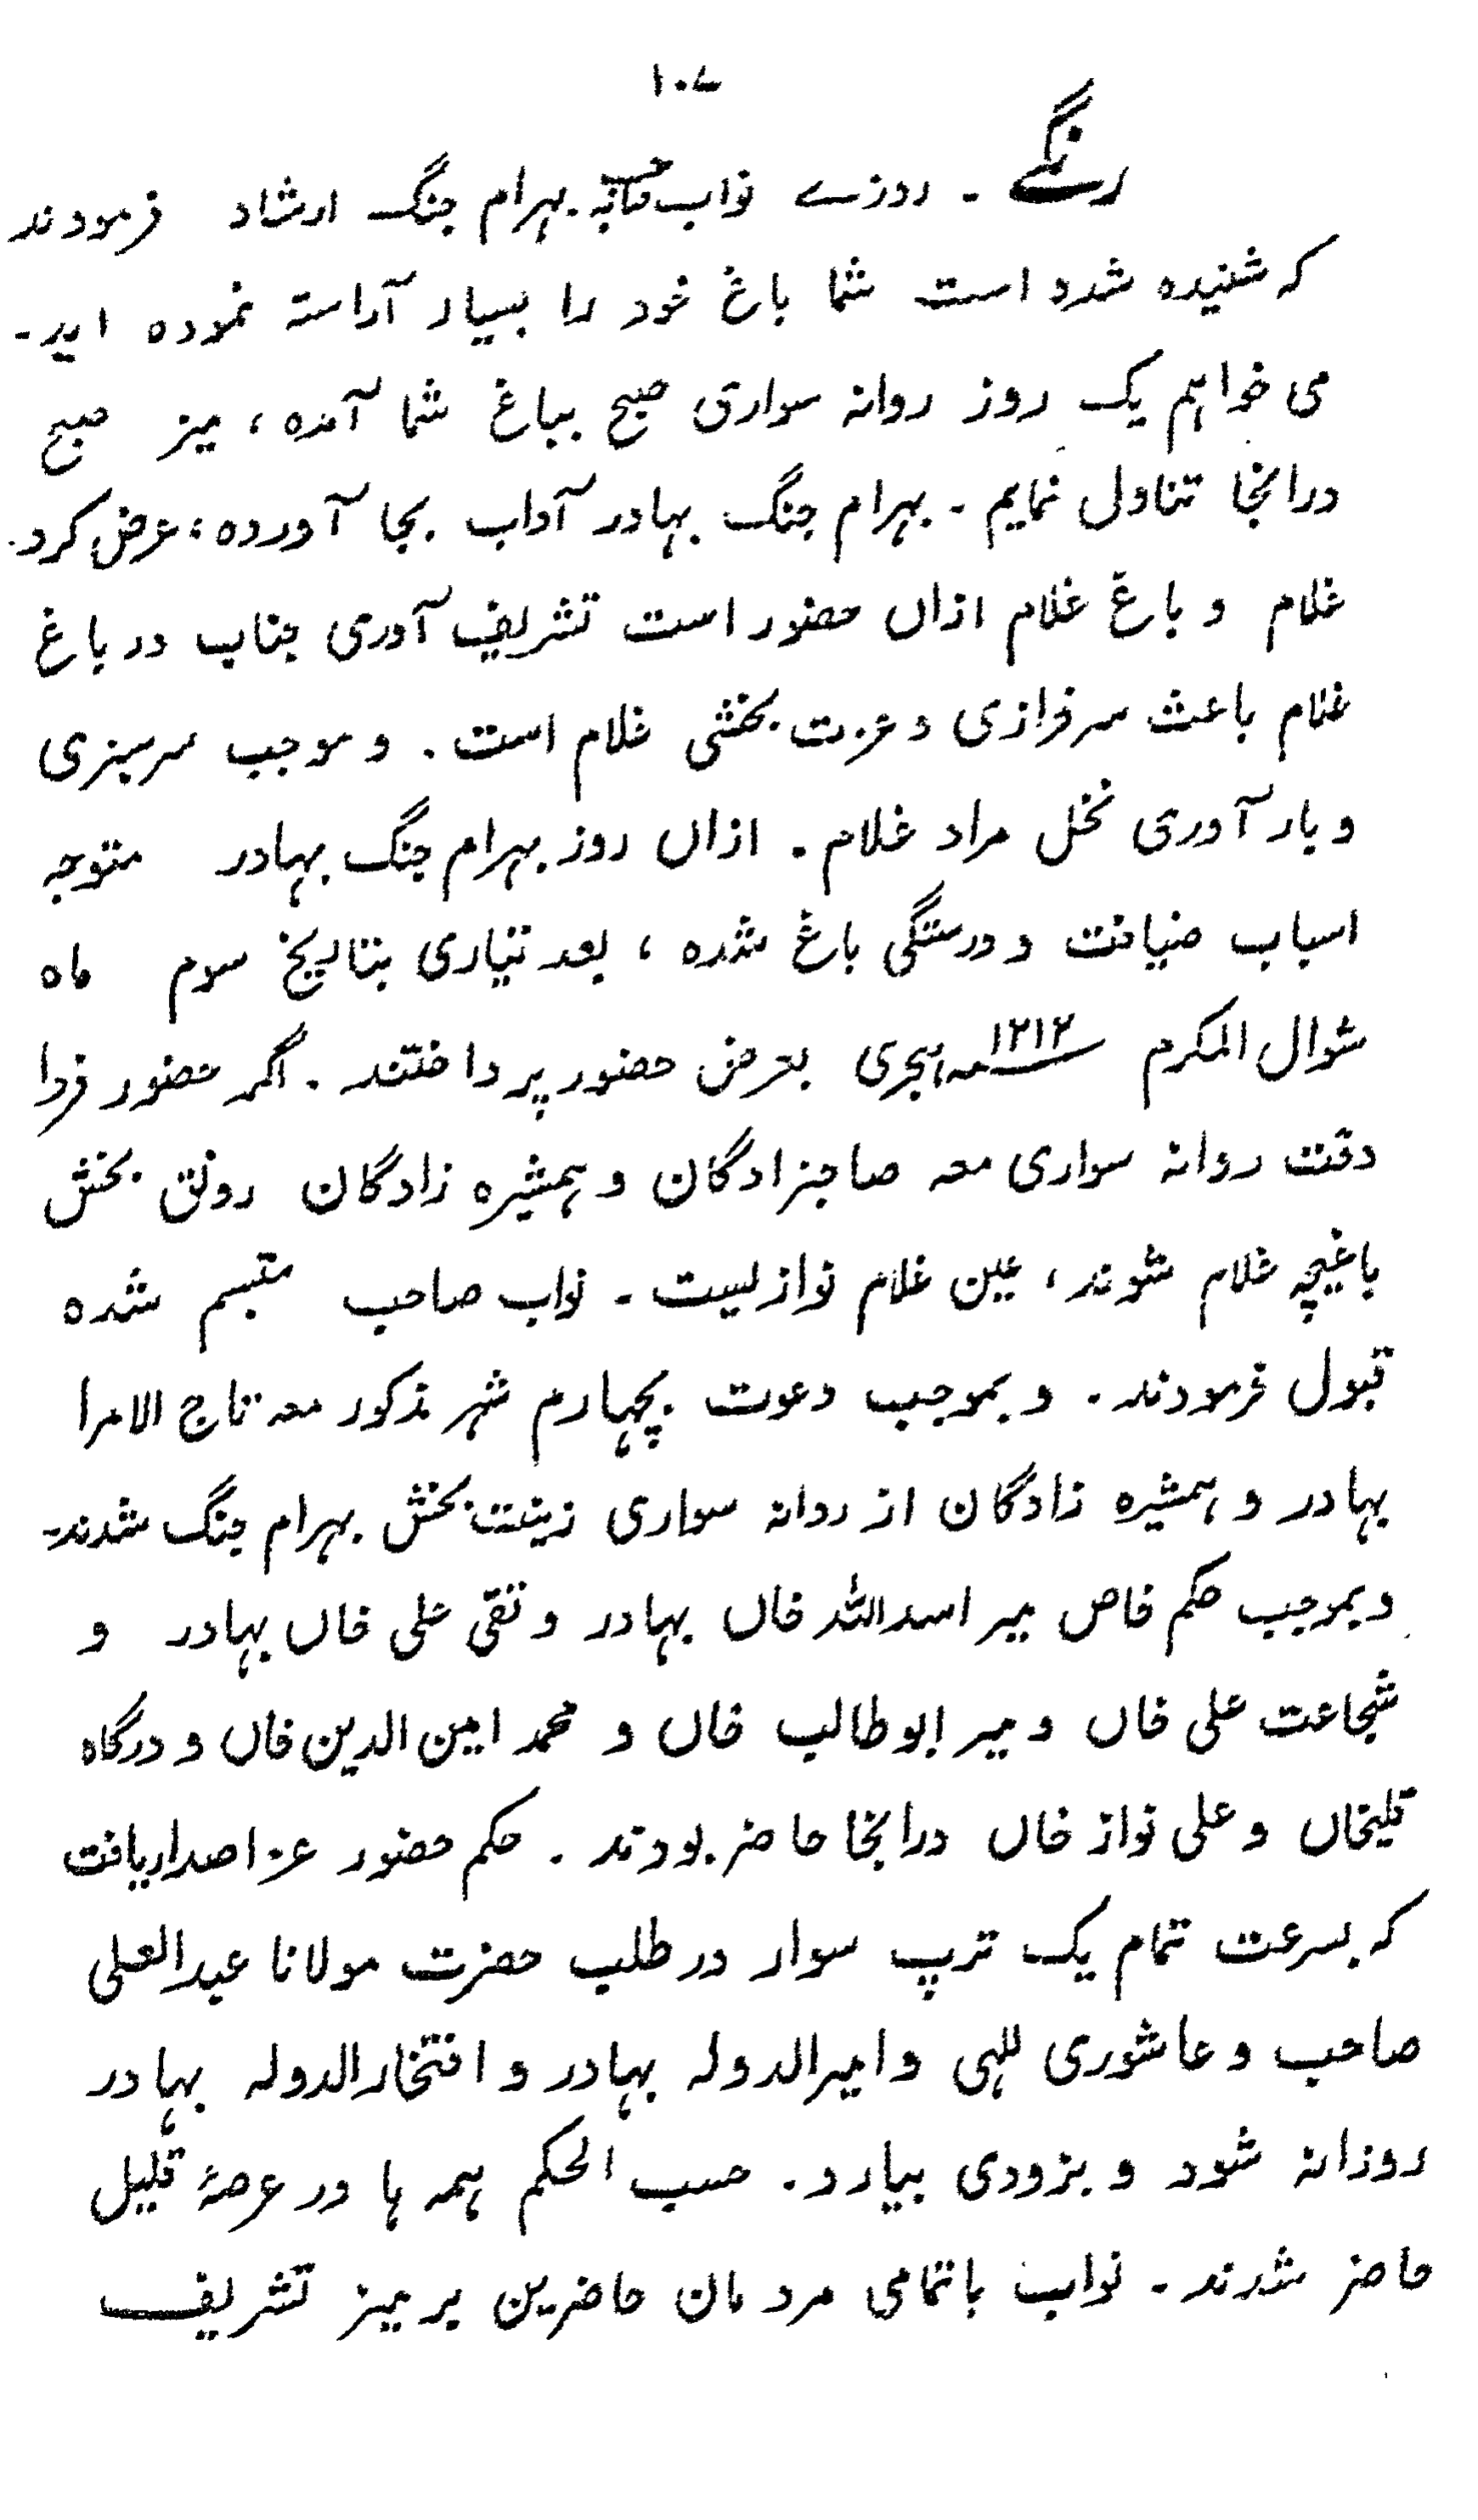 ۱۰۷
رنگے - روزے نواب صاحب بہ بہرام جنگ ارشاد فرمودند
کہ شنیدہ شدہ است شما باغ خود را بسیار آراستہ نمودہ اید -
می خواہم یک روز روانہ سواری صبح بباغ شما آمدہ، میز صبح
درانجا تناول نمایم - بہرام جنگ بہادر آداب بجا آوردہ، عرض کرد
غلام و باغ غلام ازاں حضور است تشریف آوری جناب در باغ
غلام باعث سرفرازی و عزت بخشی غلام است . و موجب سرسبزی
و بار آوری نخل مراد غلام . ازاں روز بہرام جنگ بہادر متوجہ
اسباب ضیافت و درستگی باغ شدہ، بعد تیاری بتاریخ سوم ماہ
شوال المکرم ۱۲۱۲ سنہ ہجری بعرض حضور پرداختند . اگر حضور فردا
وقت روانہ سواری معہ صاحبزادگان و ہمشیرہ زادگان رونق بخش
باغیچہ غلام شوند، عین غلام نوازیست - نواب صاحب متبسم شدہ
قبول فرمودند . و بموجب دعوت بچہارم شہر مذکور معہ تاج الامرا
بہادر و ہمشیرہ زادگان از روانہ سواری زینت بخش بہرام جنگ شدند -
و بموجب حکم خاص میر اسد اللہ خاں بہادر و تقی علی خاں بہادر و
شجاعت علی خاں و میر ابو طالب خاں و محمد امین الدین خاں و درگاہ
قلیخاں و علی نواز خاں درانجا حاضر بودند . حکم حضور عز اصدار یافت
کہ بسرعت تمام یک ترپ سوار در طلب حضرت مولانا عبدالعلی
صاحب و عاشوری للہی و امیر الدولہ بہادر و افتخار الدولہ بہادر
روزانہ شود و بزودی بیارد . حسب الحکم ہمہ ہا در عرصۂ قلیل
حاضر شدند - نواب با تمامی مردمان حاضرین بر میز تشریف